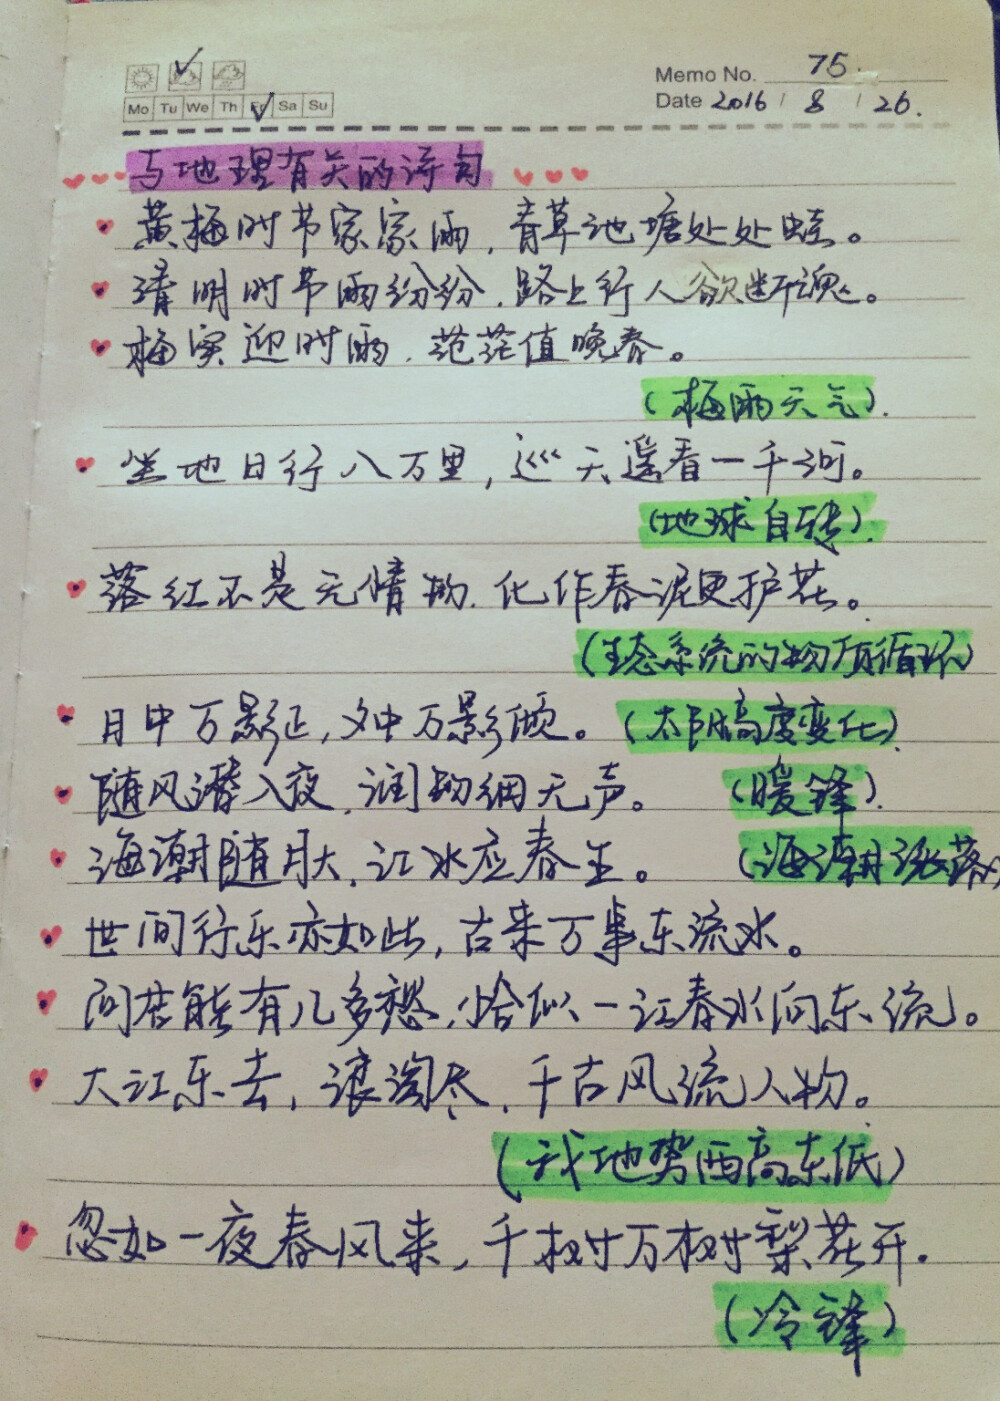 Memo No. 75.
Mo Tu We Th Fr Sa Su
Date 2016 / 8 / 26.
与地理有关的诗句
黄梅时节家家雨，青草池塘处处蛙。
清明时节雨纷纷，路上行人欲断魂。
梅实迎时雨，茫茫值晚春。
（梅雨天气）.
坐地日行八万里，巡天遥看一千河。
（地球自转）.
落红不是无情物，化作春泥更护花。
（生态系统的物质循环）
日中万影正，夕中万影倾。（太阳高度变化）
随风潜入夜，润物细无声。（暖锋）.
海潮随月大，江水应春生。（海潮涨落）
世间行乐亦如此，古来万事东流水。
问君能有几多愁，恰似一江春水向东流。
大江东去，浪淘尽，千古风流人物。
（我地势西高东低）
忽如一夜春风来，千树万树梨花开.
（冷锋）